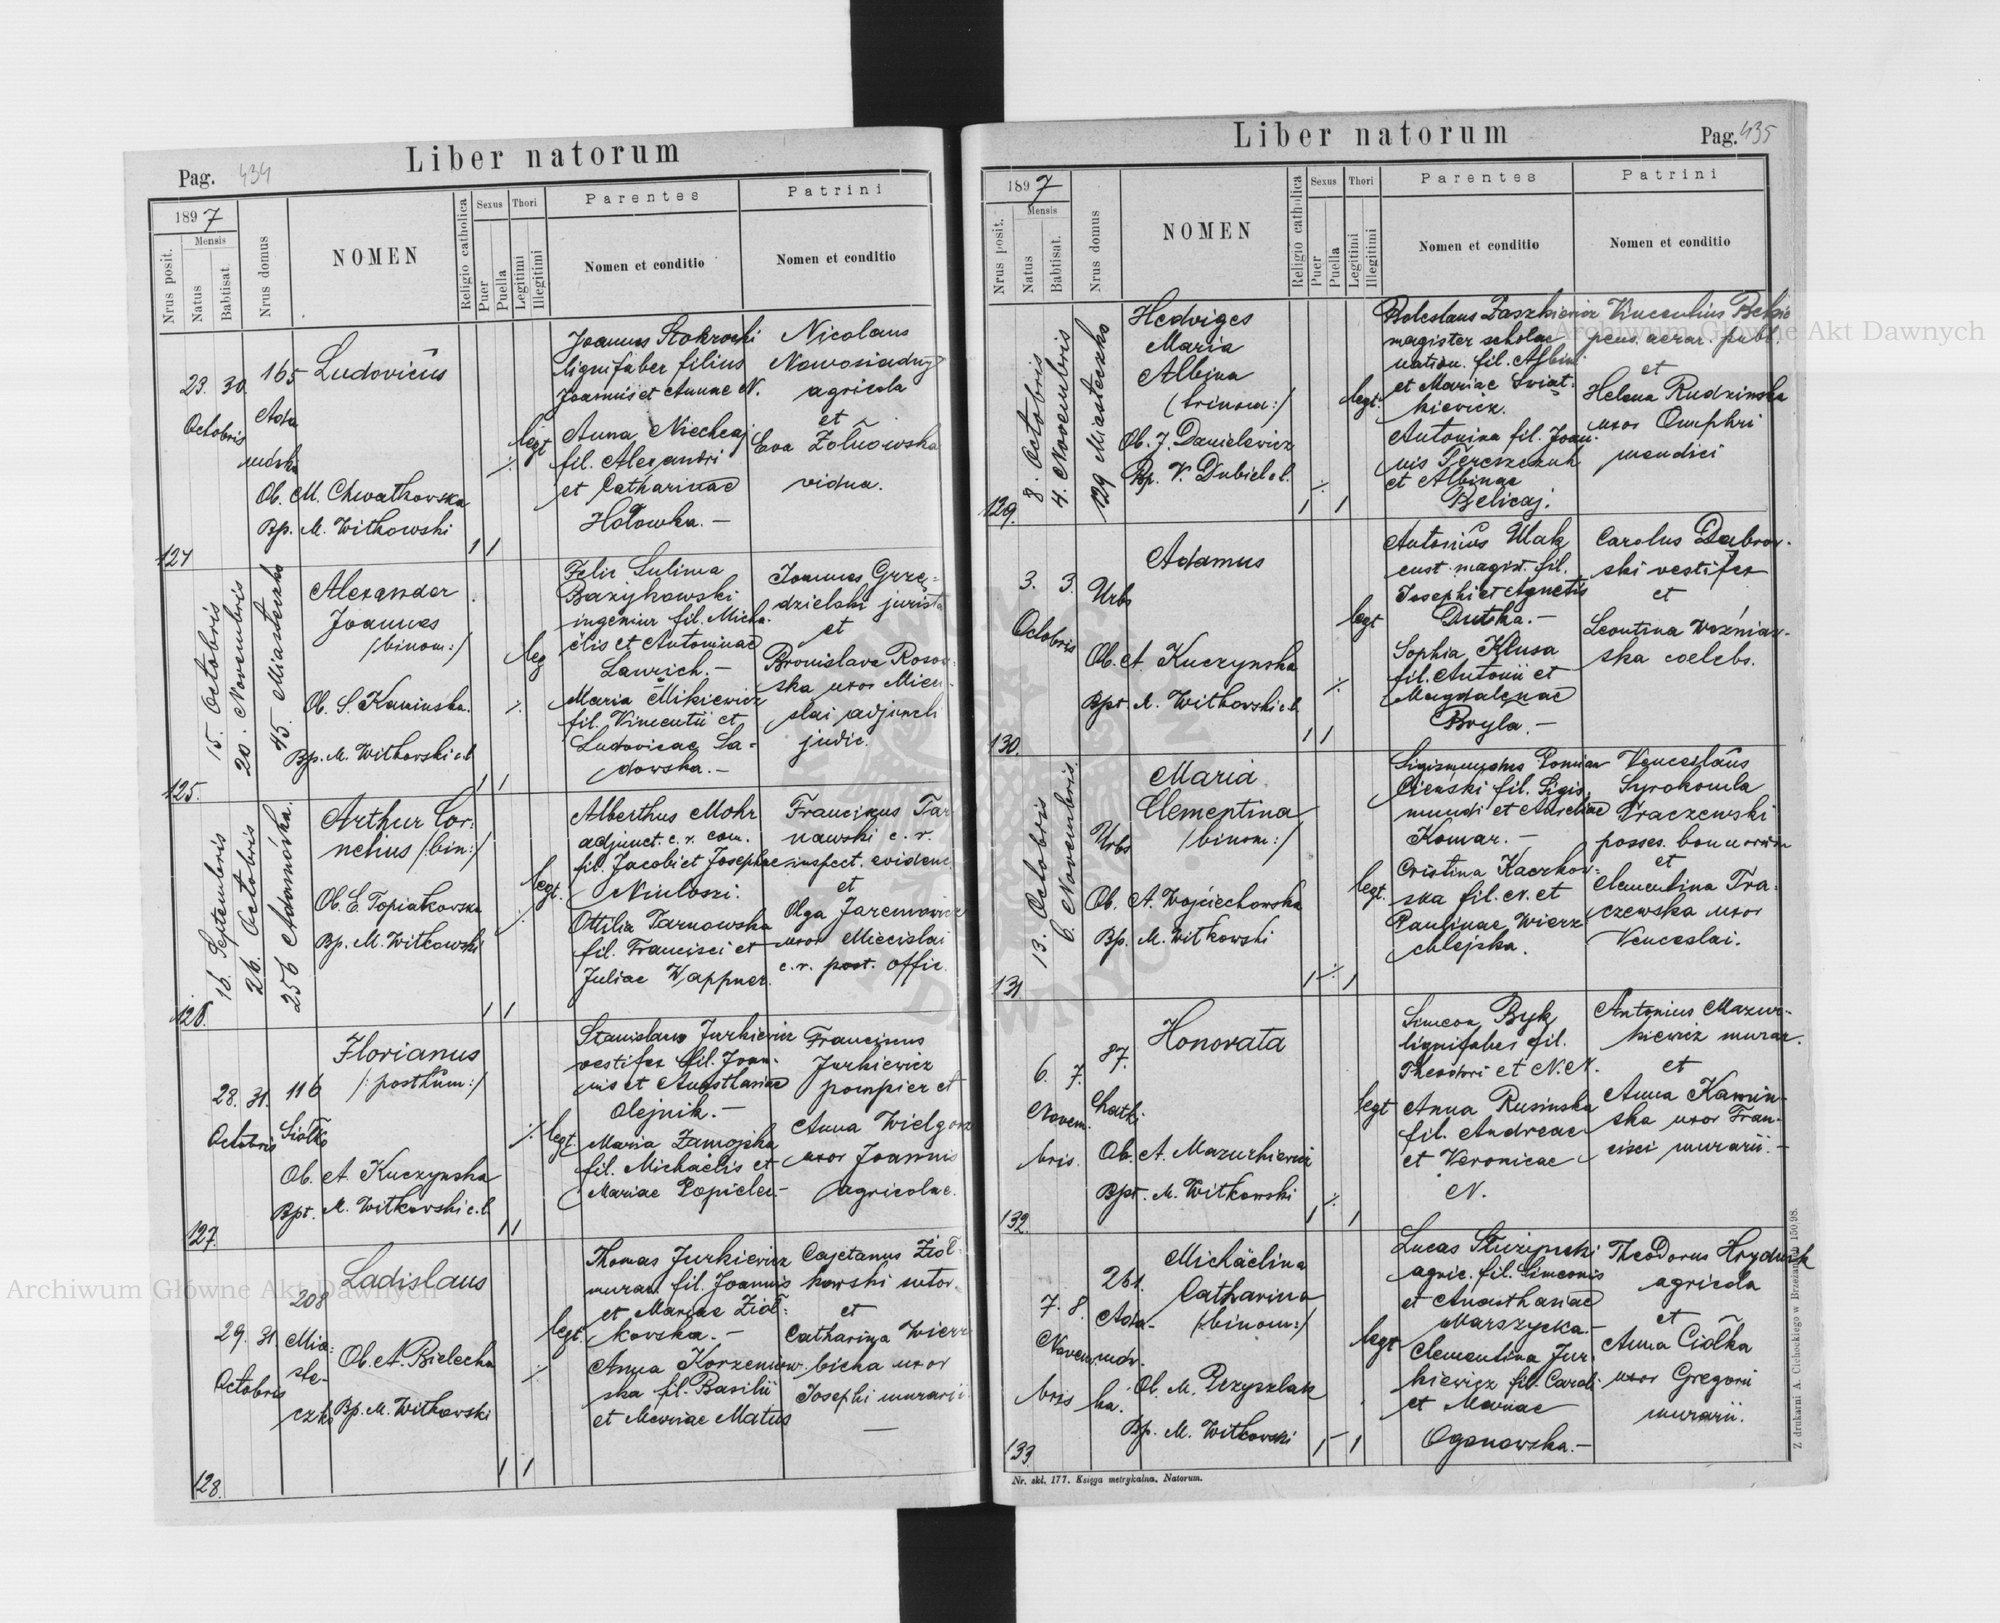 Pag. 434
Liber natorum
1897
Nrus posit.
Mensis
Natus
Babtisat.
Nrus domus
NOMEN
Religio catholica
Sexus
Puer
Puella
Thori
Legitimi
Illegitimi
Parentes
Nomen et conditio
Patrini
Nomen et conditio
124
23. 30.
Octobris
165
Ada
mówka
Ludovicus
Ob. M. Chwatkowska
Bp. M. Witkowski
legt
Joannes
lignifaber filius
Joannis et Annae N.
Anna
fil. Alexandri
et Catharinae
Hołowka. —
Nicolaus
Nowosiadły
agricola
et
Eva Żołnowska
vidua.
125.
15. Octobris
20. Novembris
45. Miasteczko
Alexander
Joannes
/binom:/
Ob. S. Kaminska.
Bp. M. Witkowski c.l.
leg
Felix Sulima
Bazykowski
ingeniur fil. Micha-
ëlis et Antoninae
Laurich. —
Maria Mikiewicz
fil. Vincentii et
Ludovicae Sa-
dowska. —
Joannes Grzę-
dzielski jurista
et
Bronislava Rosow-
ska uxor Miec-
slai adjuncti
judic.
126.
16. Septembris
26. Octobris
256 Adamówka.
Arthur Cor-
nelius /bin:/
Ob. E. Topiatkowska
Bp. M. Witkowski
legt.
Alberthus Mohr
adjunct. c. r. com.
fil. Jacobi et Josephae
Ottilia Tarnowska
fil. Francisci et
Juliae Wappner.
Franciscus Tar
nawski c. r.
inspect. evidenc.
et
Olga Jaremowicz
uxor Miecislai
c. r. post. offic.
127.
28. 31.
Octobris
116
Siołko
Florianus
/: posthum:/
Ob. A. Kuczynska
Bpt. M. Witkowski c.l.
legt.
Stanislaus Jurkiewicz
vestifex fil. Joan-
nis et Anasthasiae
Olejnik. —
Maria Zamojska
fil. Michaëlis et
Mariae Popiela. —
Franciscus
Jurkiewicz
pompier et
Anna Wielgosz
uxor Joannis
agricolae.
128.
29. 31.
Octobris
208
Mia-
ste-
czko
Ladislaus
Ob. A. Bielecka
Bp. M. Witkowski
legt.
Thomas Jurkiewicz
murar. fil. Joannis
et Mariae Ziół-
kowska. —
Anna Korzeniow-
ska fil. Basilii
et Mariae Matus
Cajetanus Ziół-
kowski sutor.
et
Catharina Wierz
bicka uxor
Josephi murarii
—
Liber natorum
Pag. 435
1897
Nrus posit.
Mensis
Natus
Babtisat.
Nrus domus
NOMEN
Religio catholica
Sexus
Puer
Puella
Thori
Legitimi
Illegitimi
Parentes
Nomen et conditio
Patrini
Nomen et conditio
129.
8. Octobris
4. Novembris
129 Miasteczko
Hedviges
Maria
Albina
/trinom:/
Ob. J. Danielewicz
Bp. V. Dubiel c.l.
legt.
Boleslaus Zaszkiewicz
magister scholae
nation. fil. Albini
et Mariae Swiat-
kiewicz.
Antonina fil. Joan-
nis Tereszczuk
et Albinae
Belicaj.
Vincentius
pens. aerar. publ.
et
Helena Rudzinska
uxor Omphri
mendici
130.
3. 3.
Octobris
Urbs
Adamus
Ob. A. Kuczynska
Bpt. M. Witkowski c.l.
legt
Antonius Ulak
cust. magist. fil.
Josephi et Agnetis
Dutska. —
Sophia Klusa
fil. Antonii et
Magdalenae
Bryla. —
Carolus Dąbrow-
ski vestifex
et
Leontina Woźniar-
ska coelebs.
131
13. Octobris
6. Novembris
Urbs
Maria
Clementina
/binom:/
Ob. A. Wojciechowska
Bp. M. Witkowski
legt.
Sigismundus Pomian
Cieński fil. Sigis-
mundi et Anieliae
Komar. —
Cristina Kaczkow-
ska fil. N. et
Paulinae Wierz
chlejska.
Venceslaus
Syrokomla
Traczewski
posses. bonorum
et
Clementina Tra-
czewska uxor
Venceslai.
132.
6. 7.
Novem-
bris.
87.
Chatki
Honorata
Ob. A. Mazurkiewicz
Bpt. M. Witkowski
legt
Simeon Byk
lignifaber fil.
Theodori et N. N.
Anna Rusinska
fil. Andreae
et Veronicae
N.
Antonius Mazur-
kiewicz murar.
et
Anna Kamin-
ska uxor Fran-
cisci murarii. —
133.
7. 8.
Novem
bris
261.
Ada-
mów-
ka.
Michaëlina
Catharina
/binom:/
Ob. M. Przyszlak
Bp. M. Witkowski
legt
Lucas
agric. fil. Simeonis
et Anasthasiae
Marszycka. —
Clementina Jur-
kiewicz fil. Caroli
et Mariae
Ogonowska. —
Theodorus Hryduk
agricola
et
Anna Ciółka
uxor Gregorii
murarii.
Nr. skl. 177. Księga metrykalna, Natorum.
Z drukarni A. Cichockiego w Brzeżanach 150 98.
Archiwum Główne Akt Dawnych
Archiwum Główne Akt Dawnych